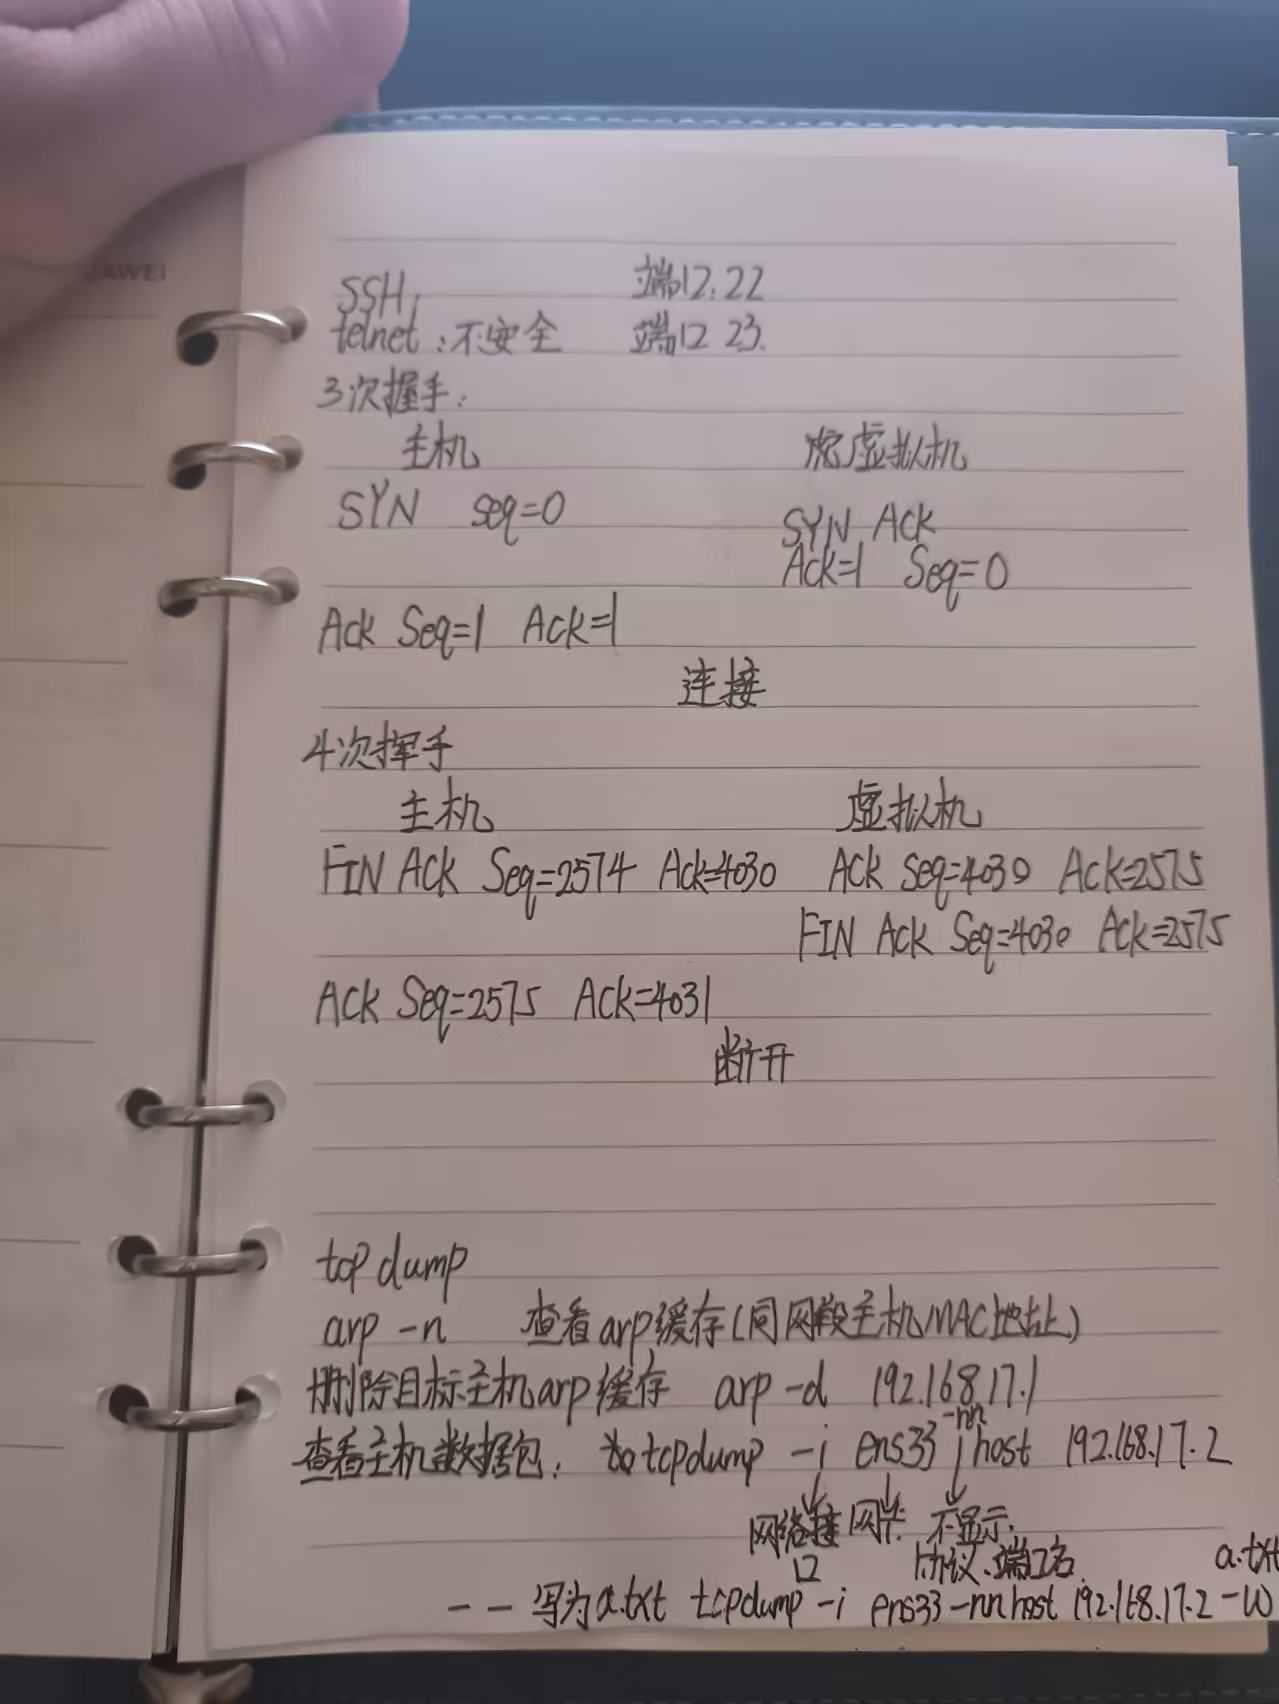 AWEI
SSH, 端口:22
telnet:不安全 端口 23.
3次握手:
主机 虚拟机
SYN seq=0
SYN Ack
Ack=1 Seq=0
Ack Seq=1 Ack=1
连接
4次挥手
主机 虚拟机
FIN Ack Seq=2574 Ack=4030 Ack Seq=4030 Ack=2575
FIN Ack Seq=4030 Ack=2575
Ack Seq=2575 Ack=4031
断开
tcpdump
arp -n 查看arp缓存(同网段主机MAC地址)
删除目标主机arp缓存 arp -d 192.168.17.1
查看主机数据包: tcpdump -i ens33 -nn host 192.168.17.2
网络接口 网卡 不显示
协议、端口名
a.txt
-- 写为a.txt tcpdump -i ens33 -nn host 192.168.17.2 -w